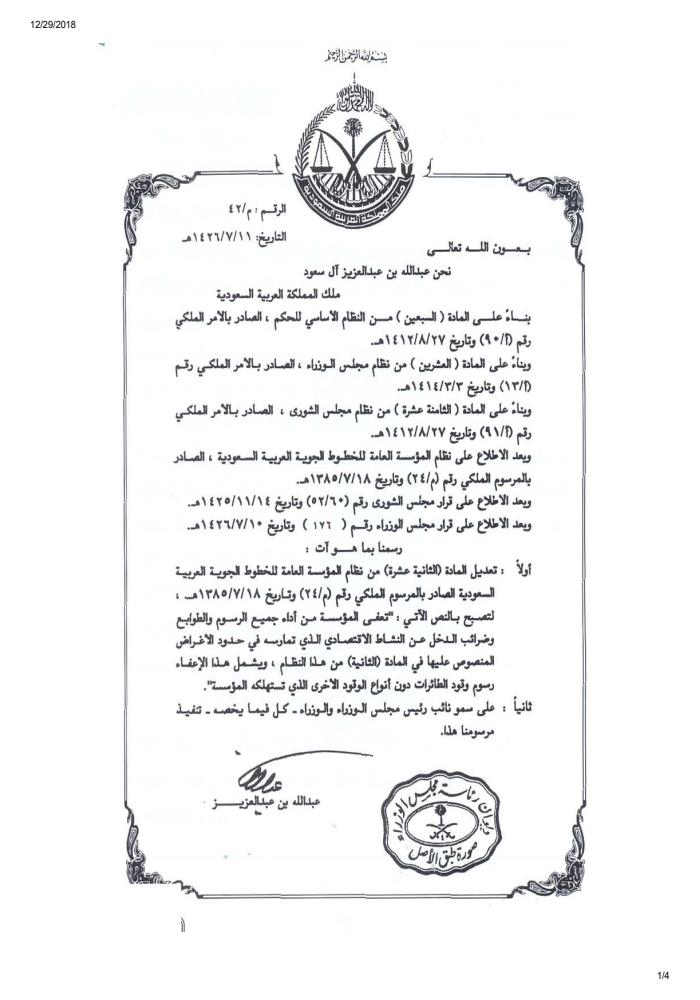 12/29/2018
بسم الله الرحمن الرحيم
ملك المملكة العربية السعودية
الرقم : م/٤٢
التاريخ: ١٤٢٦/٧/١١هـ
بعون الله تعالى
نحن عبدالله بن عبدالعزيز آل سعود
ملك المملكة العربية السعودية
بناءً على المادة ( السبعين ) من النظام الأساسي للحكم ، الصادر بالأمر الملكي
رقم (أ/٩٠) وتاريخ ١٤١٢/٨/٢٧هـ.
وبناءً على المادة ( العشرين ) من نظام مجلس الوزراء ، الصادر بالأمر الملكي رقم
(أ/١٣) وتاريخ ١٤١٤/٣/٣هـ.
وبناءً على المادة ( الثامنة عشرة ) من نظام مجلس الشورى ، الصادر بالأمر الملكي
رقم (أ/٩١) وتاريخ ١٤١٢/٨/٢٧هـ.
وبعد الاطلاع على نظام المؤسسة العامة للخطوط الجوية العربية السعودية ، الصادر
بالمرسوم الملكي رقم (م/٢٤) وتاريخ ١٣٨٥/٧/١٨هـ.
وبعد الاطلاع على قرار مجلس الشورى رقم (٥٢/٦٠) وتاريخ ١٤٢٥/١١/١٤هـ.
وبعد الاطلاع على قرار مجلس الوزراء رقم ( ١٧٦ ) وتاريخ ١٤٢٦/٧/١٠هـ.
رسمنا بما هو آت :
أولاً : تعديل المادة (الثانية عشرة) من نظام المؤسسة العامة للخطوط الجوية العربية
السعودية الصادر بالمرسوم الملكي رقم (م/٢٤) وتاريخ ١٣٨٥/٧/١٨هـ ،
لتصبح بالنص الآتي : "تعفى المؤسسة من أداء جميع الرسوم والطوابع
وضرائب الدخل عن النشاط الاقتصادي الذي تمارسه في حدود الأغراض
المنصوص عليها في المادة (الثانية) من هذا النظام ، ويشمل هذا الإعفاء
رسوم وقود الطائرات دون أنواع الوقود الأخرى الذي تستهلكه المؤسسة".
ثانياً : على سمو نائب رئيس مجلس الوزراء والوزراء ـ كل فيما يخصه ـ تنفيذ
مرسومنا هذا.
عبدالله بن عبدالعزيز
ديوان رئاسة مجلس الوزراء
صورة طبق الأصل
1/4